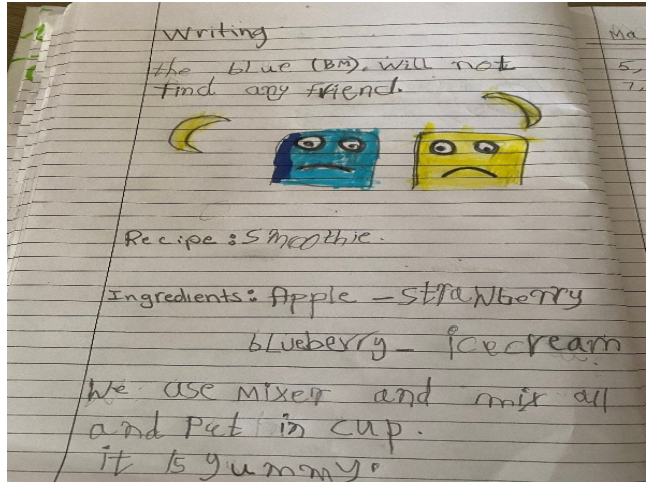 Writing
the blue (BM). will not
find any friend.
Recipe: Smoothie.
Ingredients: Apple - strawberry
blueberry - icecream
We use mixer and mix all
and Put in cup.
it is yummy.
Ma
5,
7,